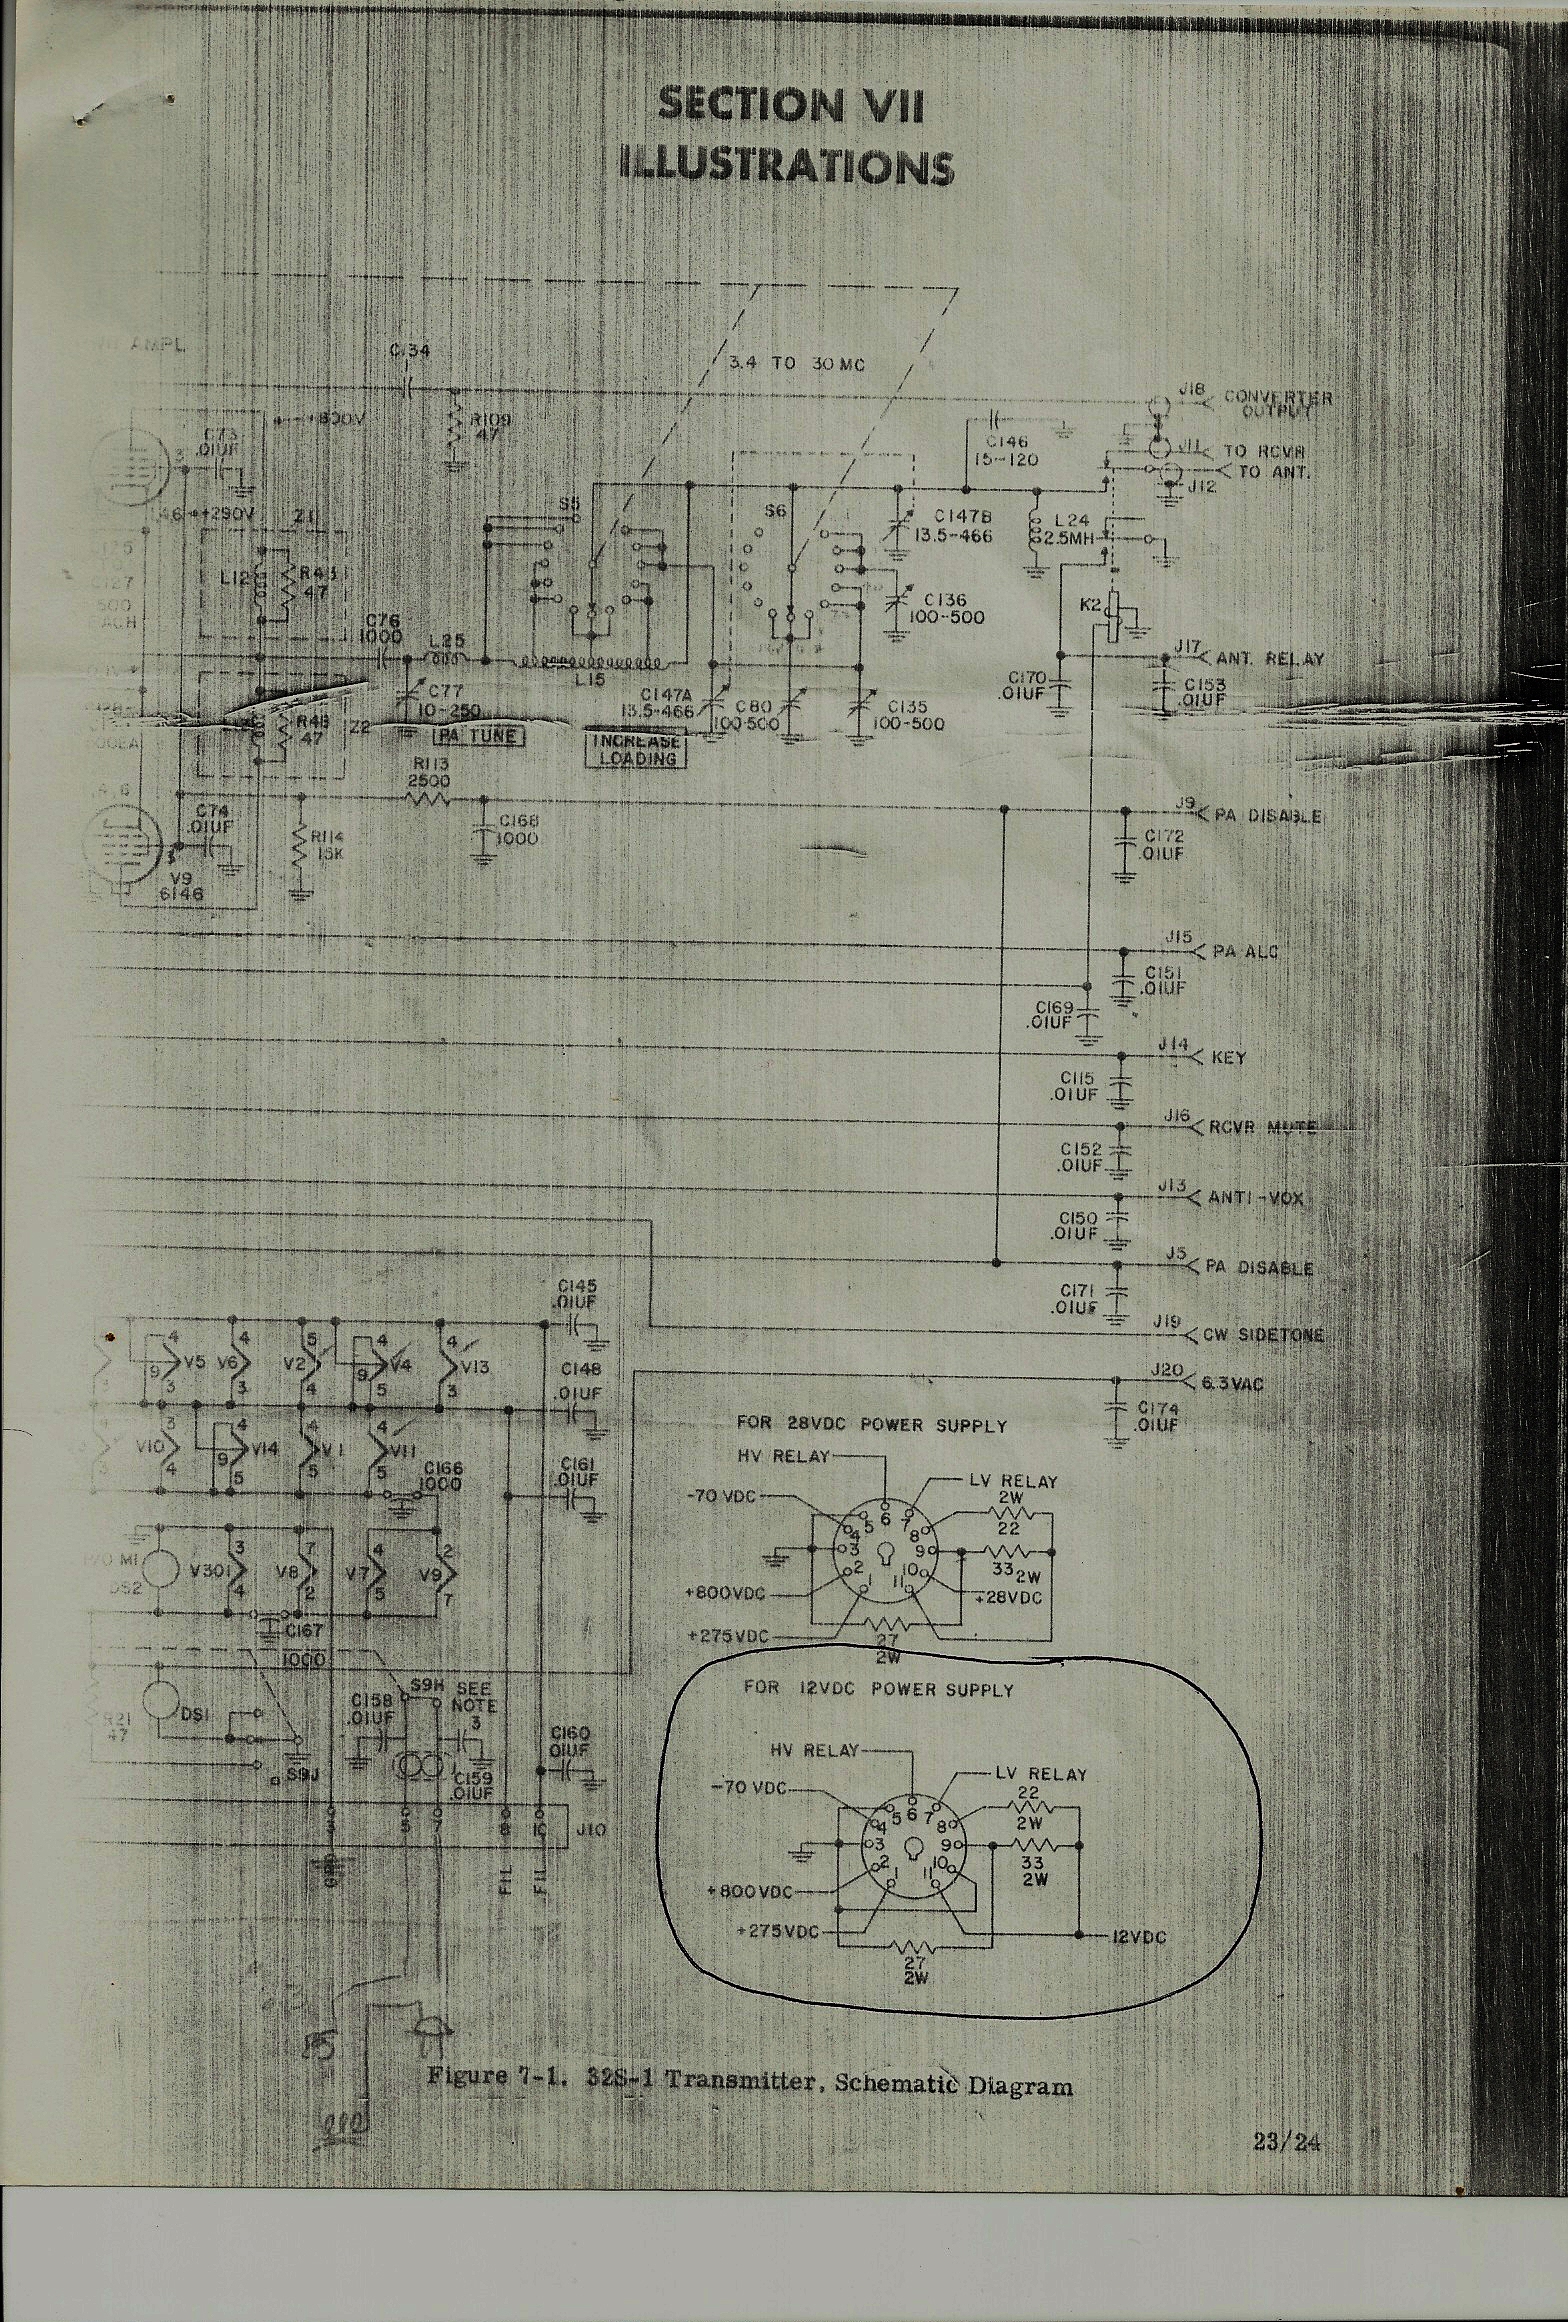 SECTION VII
ILLUSTRATIONS
AMPL
C134
3.4 TO 30 MC
R109
47
+800V
C73
.01UF
3
J18
CONVERTER
OUTPUT
J11
TO RCVR
TO ANT.
J12
C146
15-120
+290V
Z1
L12
47
S5
S6
C147B
13.5-466
L24
2.5MH
C136
100-500
K2
C76
1000
L25
L15
C77
10-250
PA TUNE
C147A
13.5-466
INCREASE
LOADING
C80
100-500
C135
100-500
J17
ANT. RELAY
C170
.01UF
C153
.01UF
47
Z2
R113
2500
C74
.01UF
R114
15K
C168
1000
V9
6146
J9
PA DISABLE
C172
.01UF
J15
PA ALC
C151
.01UF
C169
.01UF
J14
KEY
C115
.01UF
J16
RCVR MUTE
C152
.01UF
J13
ANTI-VOX
C150
.01UF
J5
PA DISABLE
C171
.01UF
J19
CW SIDETONE
J20
6.3VAC
C174
.01UF
C145
.01UF
4 4 5 4 4
9 V5 V6 V2 9 V4 V13
3 3 4 5 3
C148
.01UF
3 4 4
V10 9 V14 V1 V11
4 5 5 5
C166
1000
C161
.01UF
3 7 4 2
V301 V8 V7 V9
4 2 5 7
DS2
C167
1000
DS1
S9J
C158
.01UF
S9H
SEE
NOTE
3
C159
.01UF
C160
.01UF
R21
47
J10
FIL
FIL
FOR 28VDC POWER SUPPLY
HV RELAY
-70 VDC
LV RELAY
2W
22
33
2W
+800VDC
+28VDC
+275VDC
27
2W
1 2 3 4 5 6 7 8 9 10 11
FOR 12VDC POWER SUPPLY
HV RELAY
-70 VDC
LV RELAY
22
2W
33
2W
+800VDC
+275VDC
12VDC
27
2W
1 2 3 4 5 6 7 8 9 10 11
Figure 7-1. 32S-1 Transmitter, Schematic Diagram
23/24